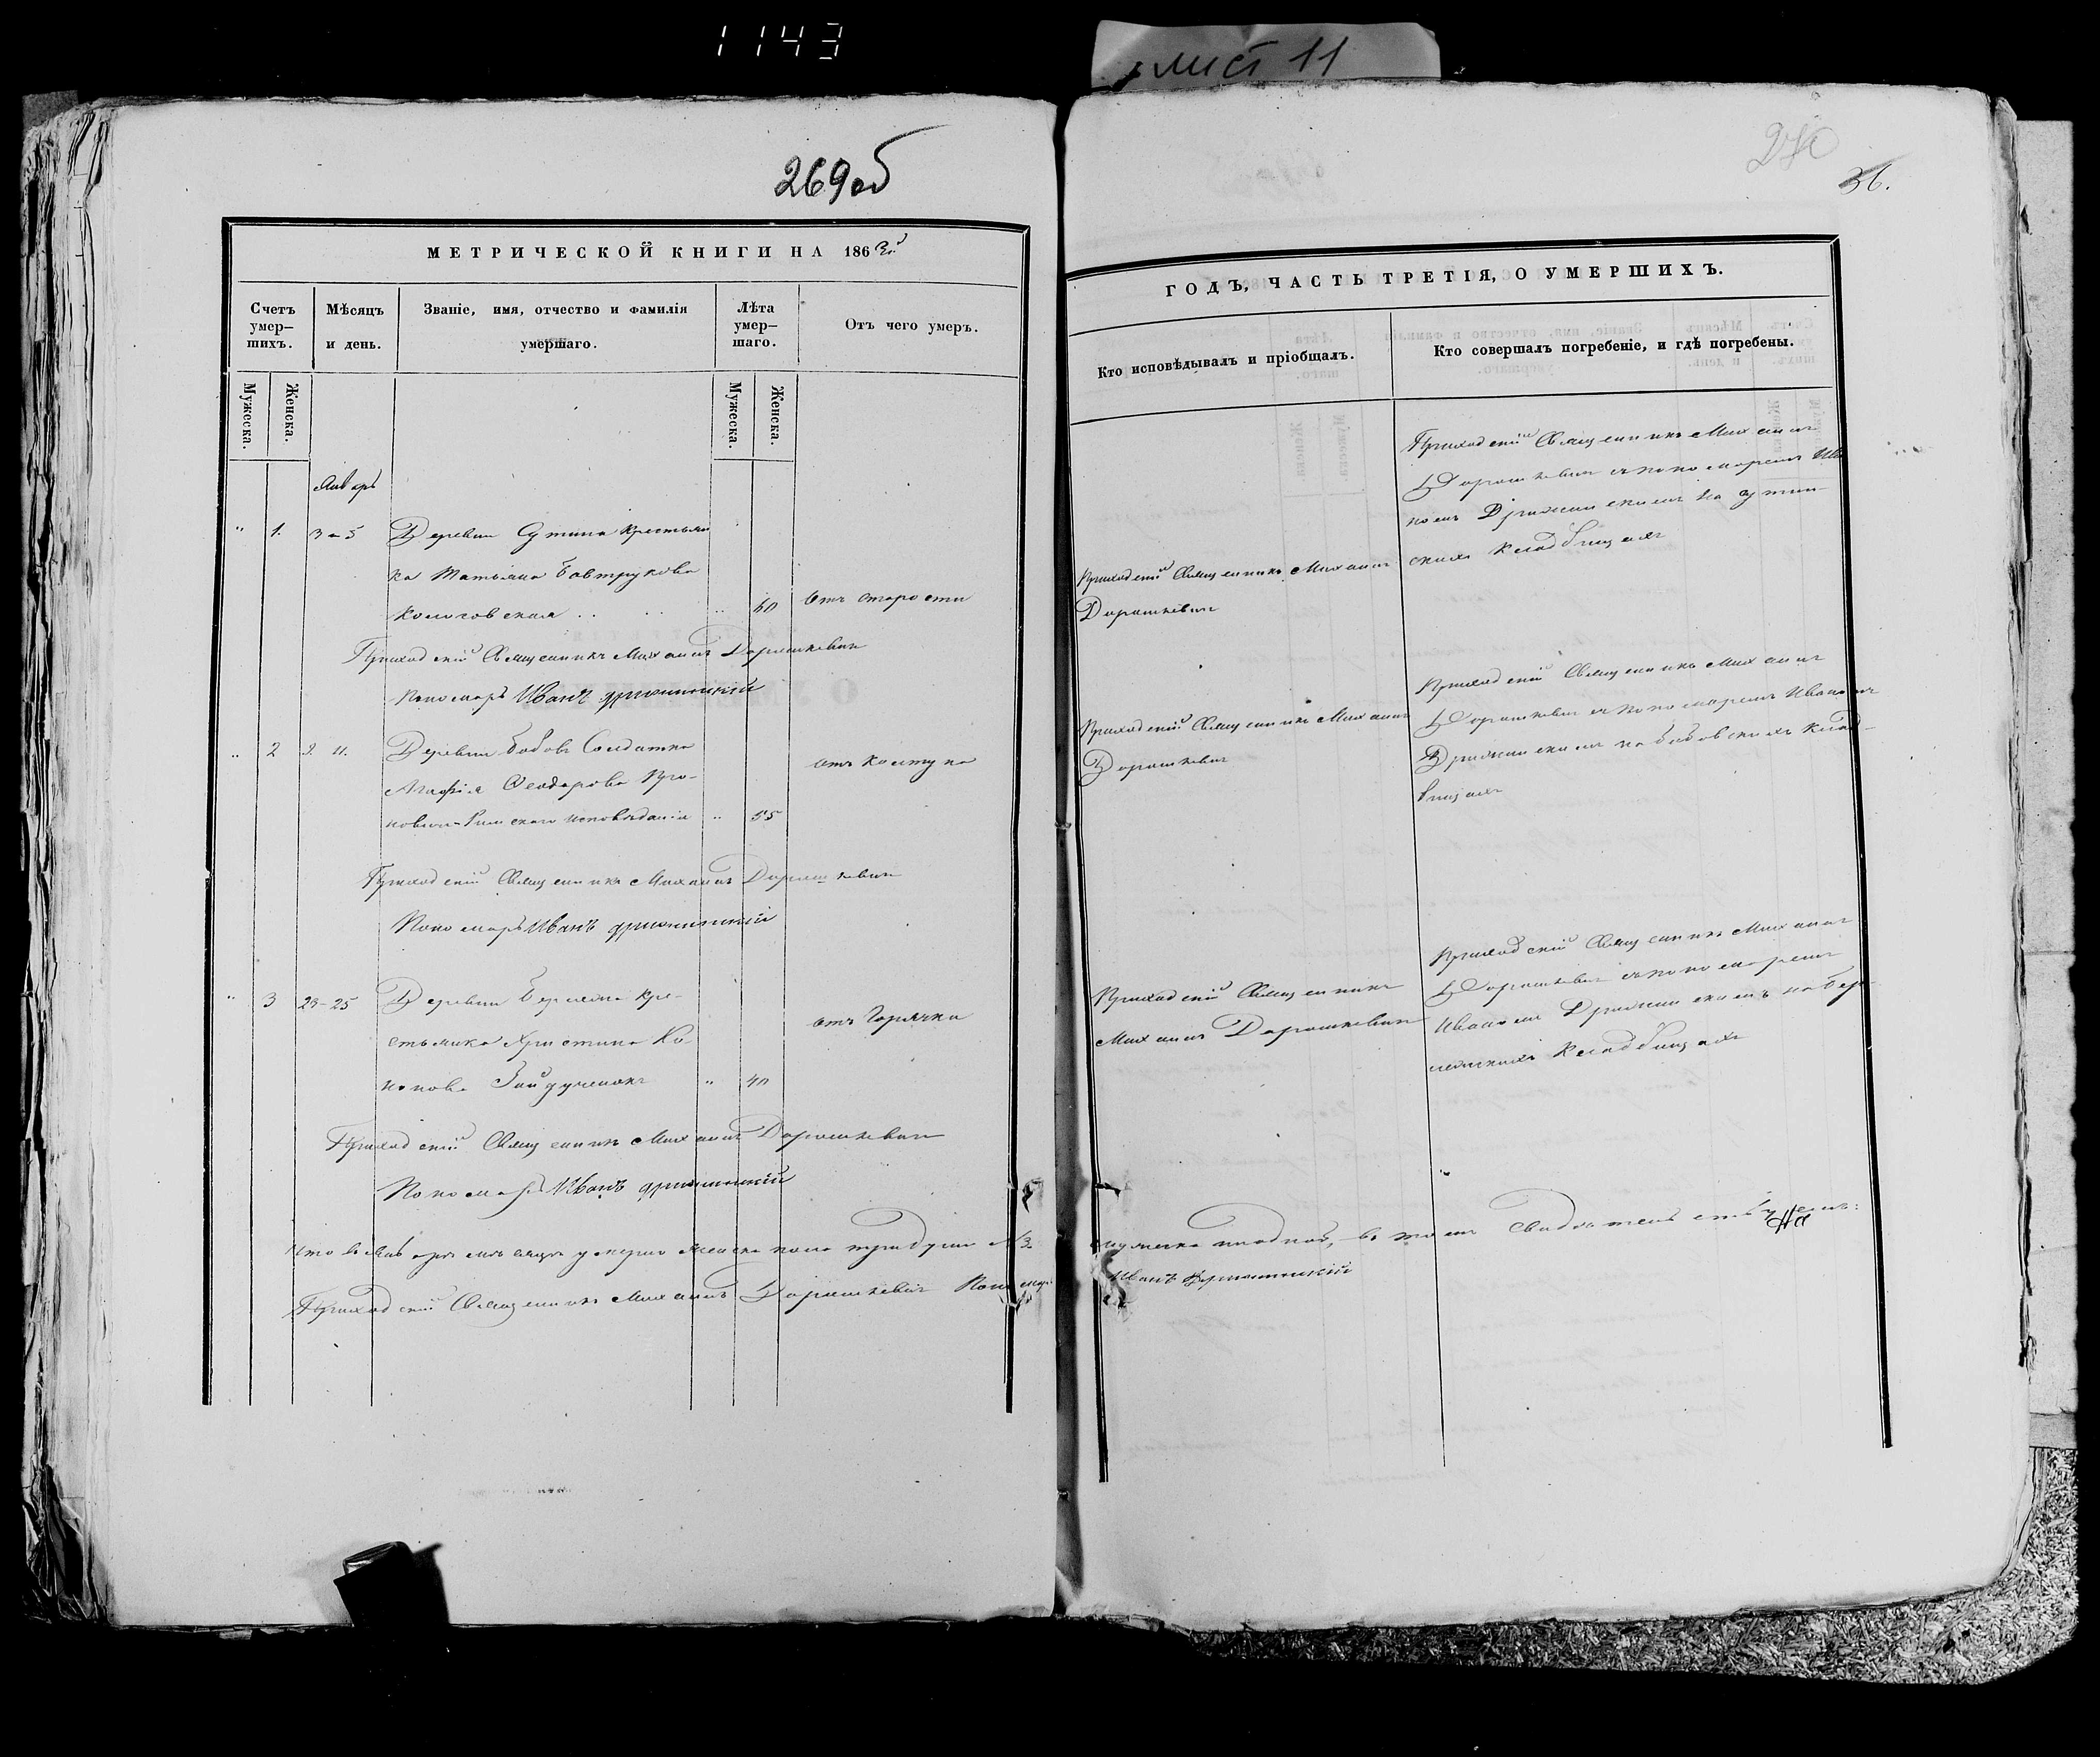 1143
лист 11
269 об
270
36.
МЕТРИЧЕСКОЙ КНИГИ НА 1863й
Счетъ умер–шихъ.
Мѣсяцъ и день.
Званіе, имя, отчество и фамилія умершаго.
Лѣта умер–шаго.
Отъ чего умеръ.
Мужеска.
Женска.
Мужеска.
Женска.
Январь
" 1. 3 – 5 Деревни крестьян
ка Татьяна
.. 60 Отъ старости
Приходскій Священникъ Михаилъ Дорошкевич
Пономарь Иванъ
.. 2 9. 11. Деревни Бабовъ Солдатка
Агафія Феодорова
Римскаго исповѣданія .. 55
отъ колтуна
Приходскій Священникъ Михаилъ Дорошкевич
Пономарь Иванъ
" 3 23–25 Деревни кре–
стьянка Христина Ко
нонова .. 40
отъ Горячки
Приходскій Священникъ Михаилъ Дорошкевич
Пономарь Иванъ
Что въ Январѣ мѣсяцѣ умерло женска пола три души № 3.
Приходскій Священникъ Михаилъ Дорошкевич Пономарь
ГОДЪ, ЧАСТЬ ТРЕТІЯ, О УМЕРШИХЪ.
Кто исповѣдывалъ и пріобщалъ.
Кто совершалъ погребеніе, и гдѣ погребены.
Приходскій Священникъ Михаилъ
Дорошкевич
Приходскій Священникъ Михаилъ
Дорошкевич съ пономаремъ Ива
номъ на
скихъ кладбищахъ
Приходскій Священникъ Михаилъ
Дорошкевич
Приходскій Священникъ Михаилъ
Дорошкевич съ пономаремъ Иваномъ
на бабовскихъ клад–
бищахъ
Приходскій Священникъ
Михаилъ Дорошкевич
Приходскій Священникъ Михаилъ
Дорошкевич съ пономаремъ
Иваномъ на
кладбищахъ
мужеска ни одной, въ томъ свидѣтельствуемъ:
Иванъ